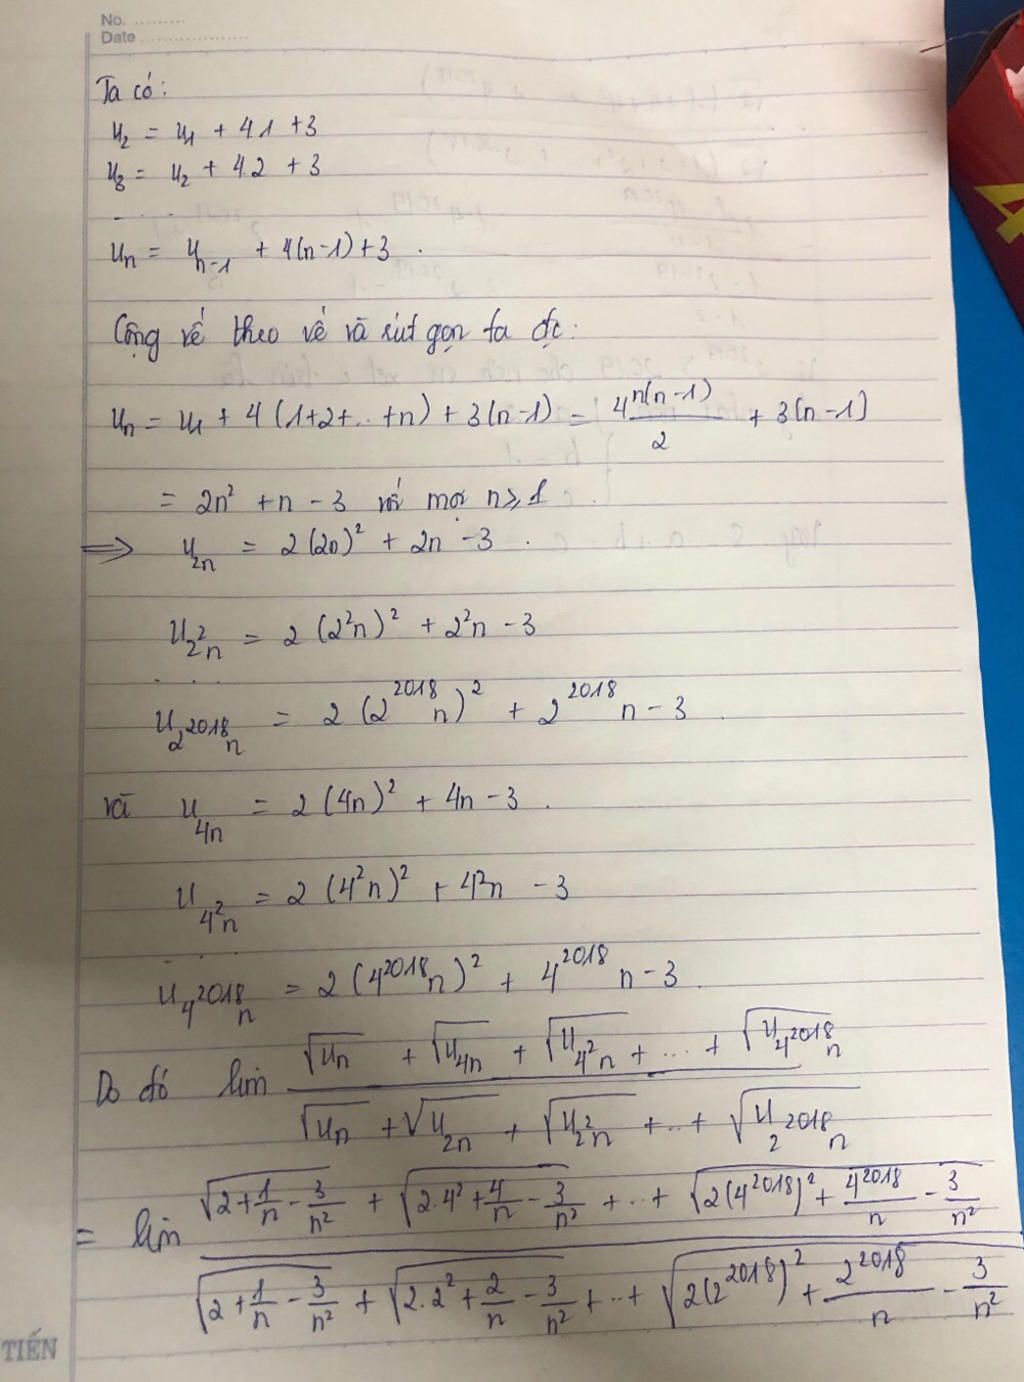 No. ..........
Date ......................
Ta có:
u₂ = u₁ + 4.1 + 3
u₃ = u₂ + 4.2 + 3
. . .
uₙ = uₙ₋₁ + 4(n-1) + 3 .
Cộng vế theo vế và rút gọn ta đc:
uₙ = u₁ + 4(1+2+..+n) + 3(n-1) = 4 n(n-1)/2 + 3(n-1)
= 2n² + n - 3 với mọi n ≥ 1
⟹ u_{2n} = 2(2n)² + 2n - 3 .
u_{2²n} = 2(2²n)² + 2²n - 3
. . .
u_{2^{2018}n} = 2(2^{2018}n)² + 2^{2018}n - 3
và u_{4n} = 2(4n)² + 4n - 3 .
u_{4²n} = 2(4²n)² + 4²n - 3
. . .
u_{4^{2018}n} = 2(4^{2018}n)² + 4^{2018}n - 3 .
Do đó lim (√uₙ + √u_{4n} + √u_{4²n} + ... + √u_{4^{2018}n}) / (√uₙ + √u_{2n} + √u_{2²n} + .. + √u_{2^{2018}n})
= lim (√(2 + 1/n - 3/n²) + √(2.4² + 4/n - 3/n²) + .. + √(2(4^{2018})² + 4^{2018}/n - 3/n²)) / (√(2 + 1/n - 3/n²) + √(2.2² + 2/n - 3/n²) + .. + √(2(2^{2018})² + 2^{2018}/n - 3/n²))
TIẾN